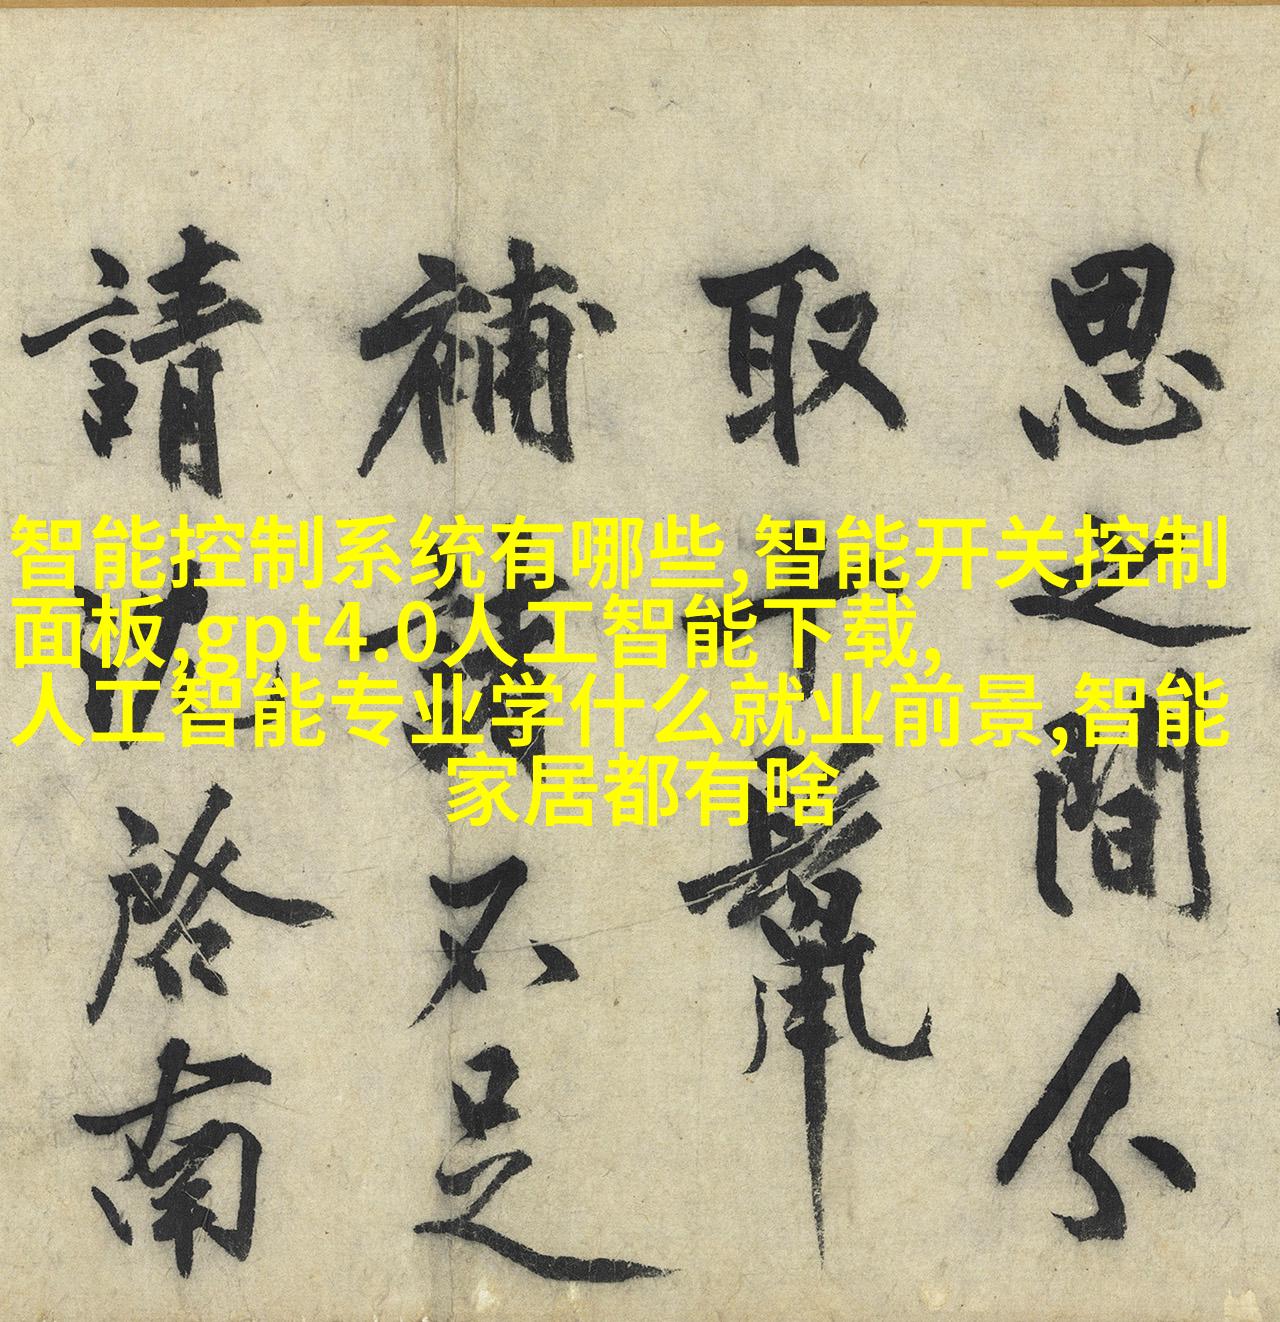 智能控制系统有哪些,智能开关控制
面板,gpt4.0人工智能下载,
人工智能专业学什么就业前景,智能
家居都有啥
思之間分
取十鬣
補諸不足
請沈啓南